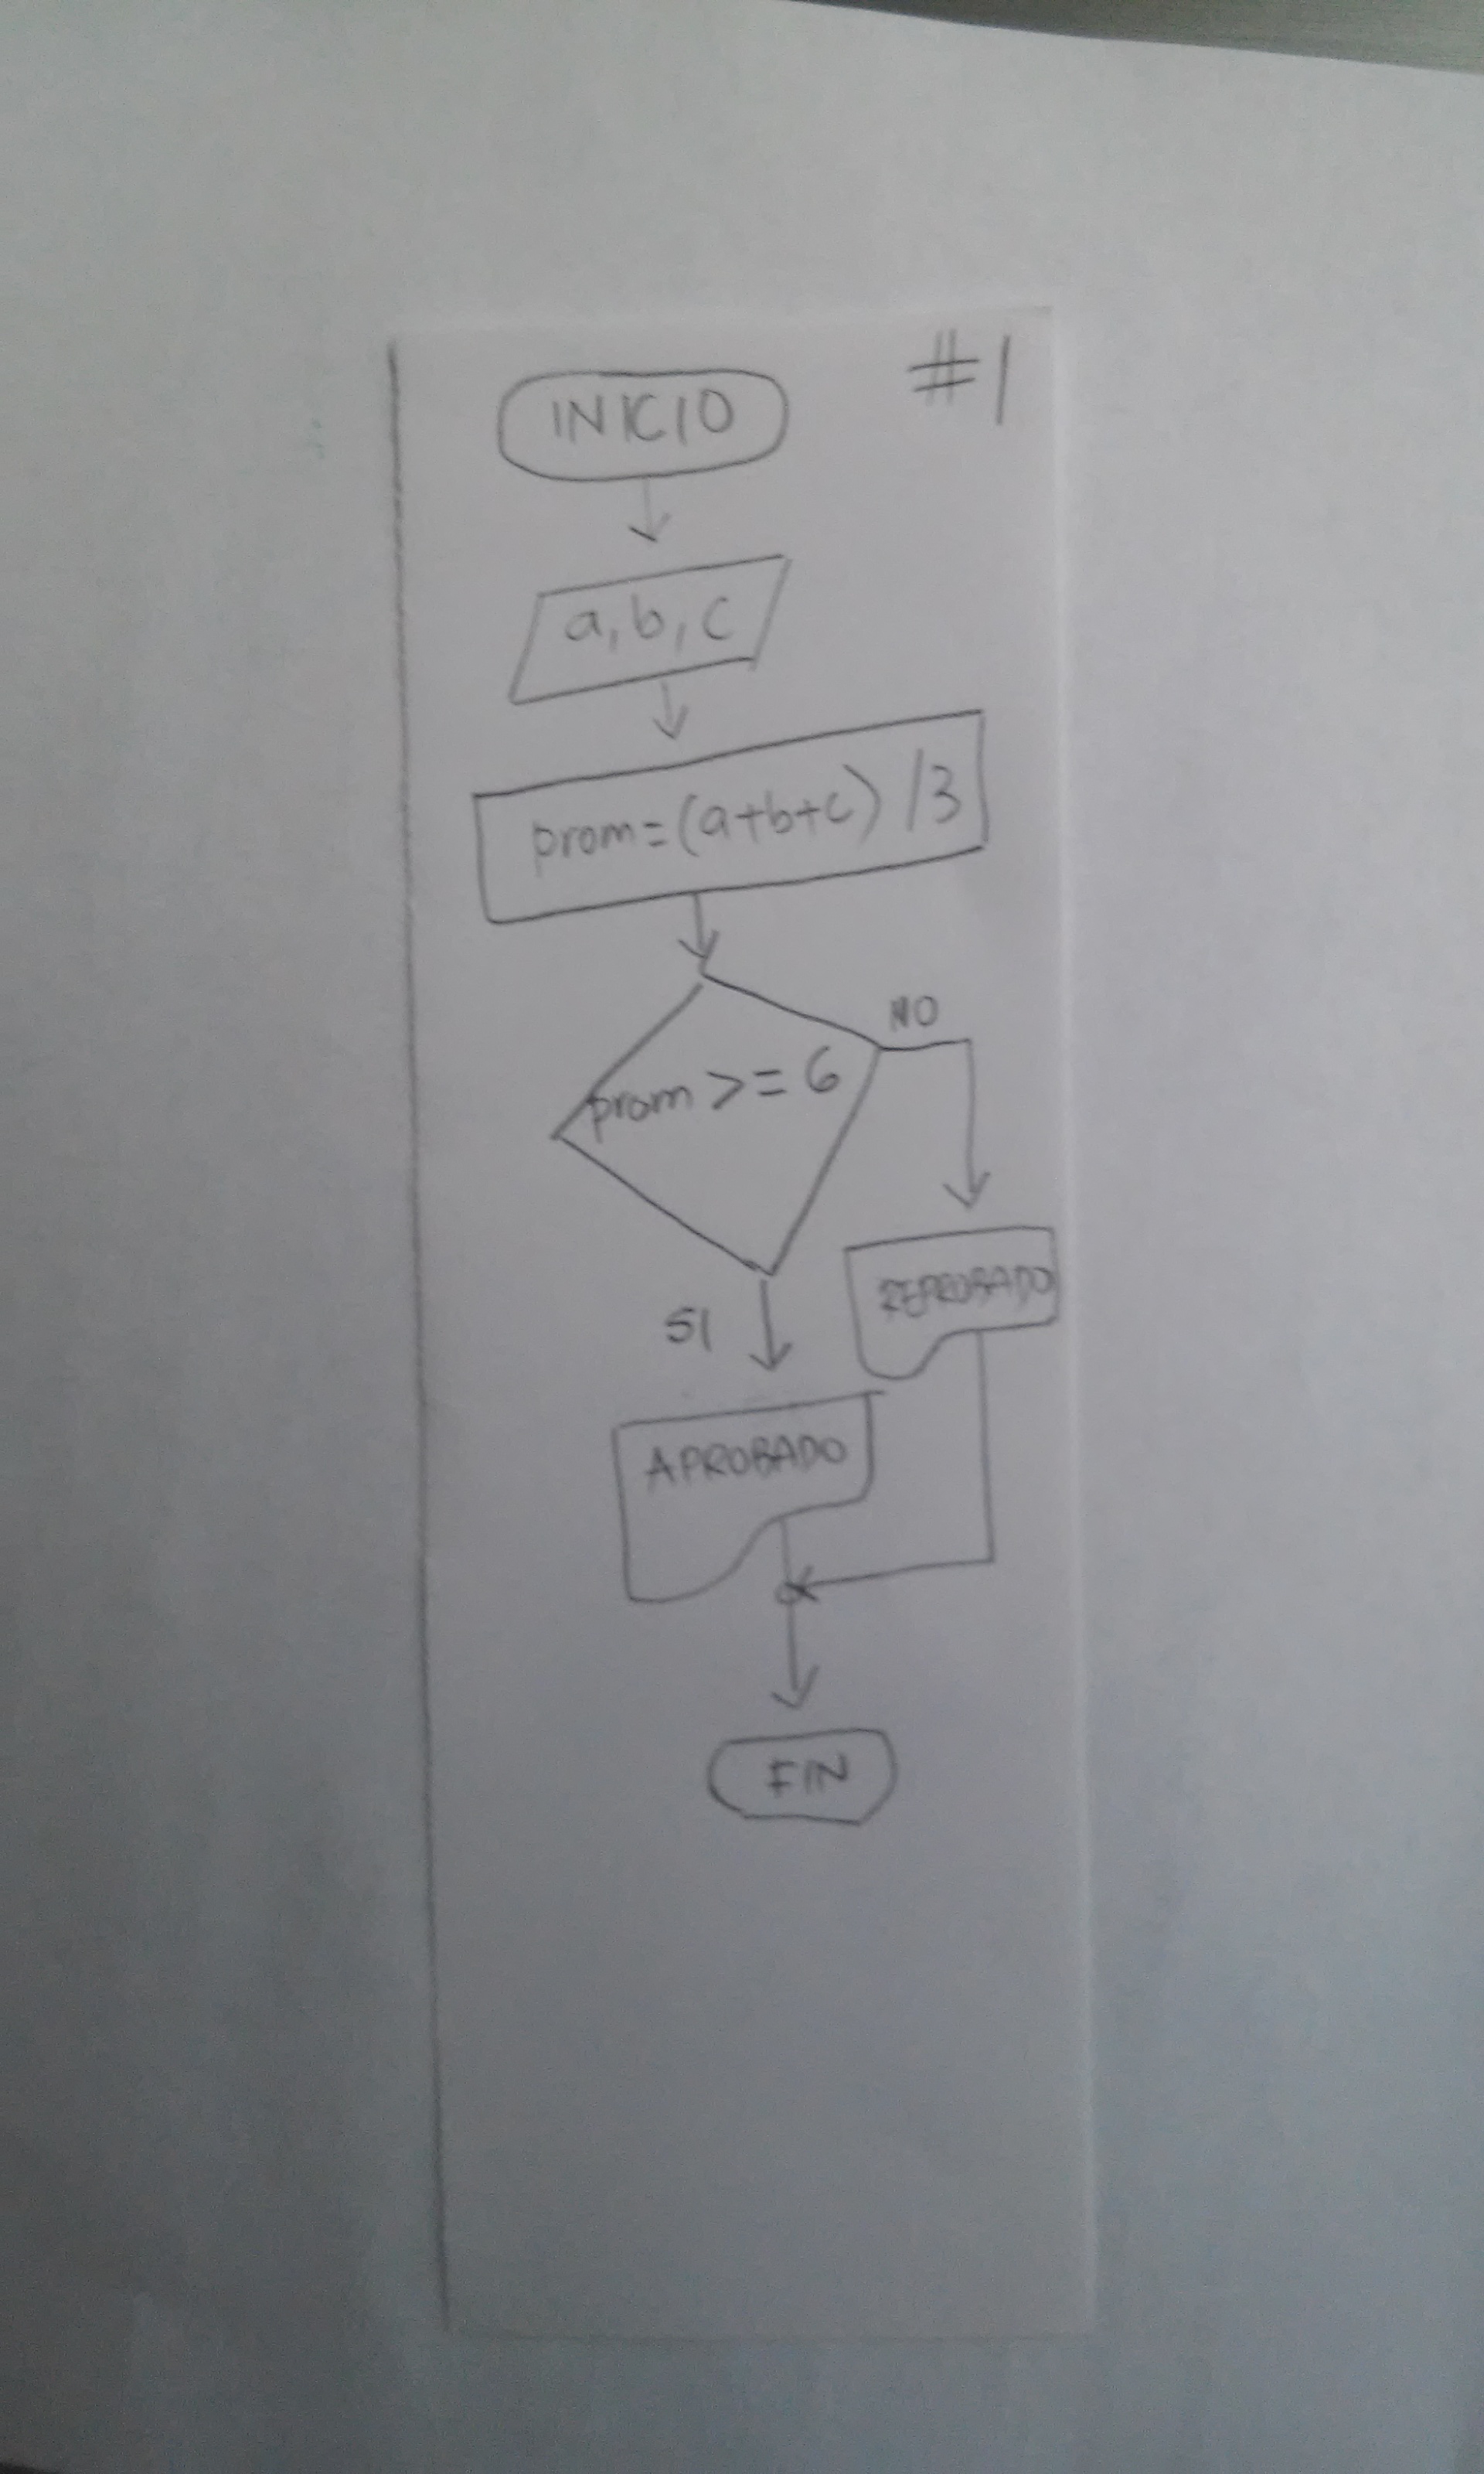 #1
INICIO
a, b, c
prom=(a+b+c) /3
prom >= 6
NO
SI
REPROBADO
APROBADO
FIN